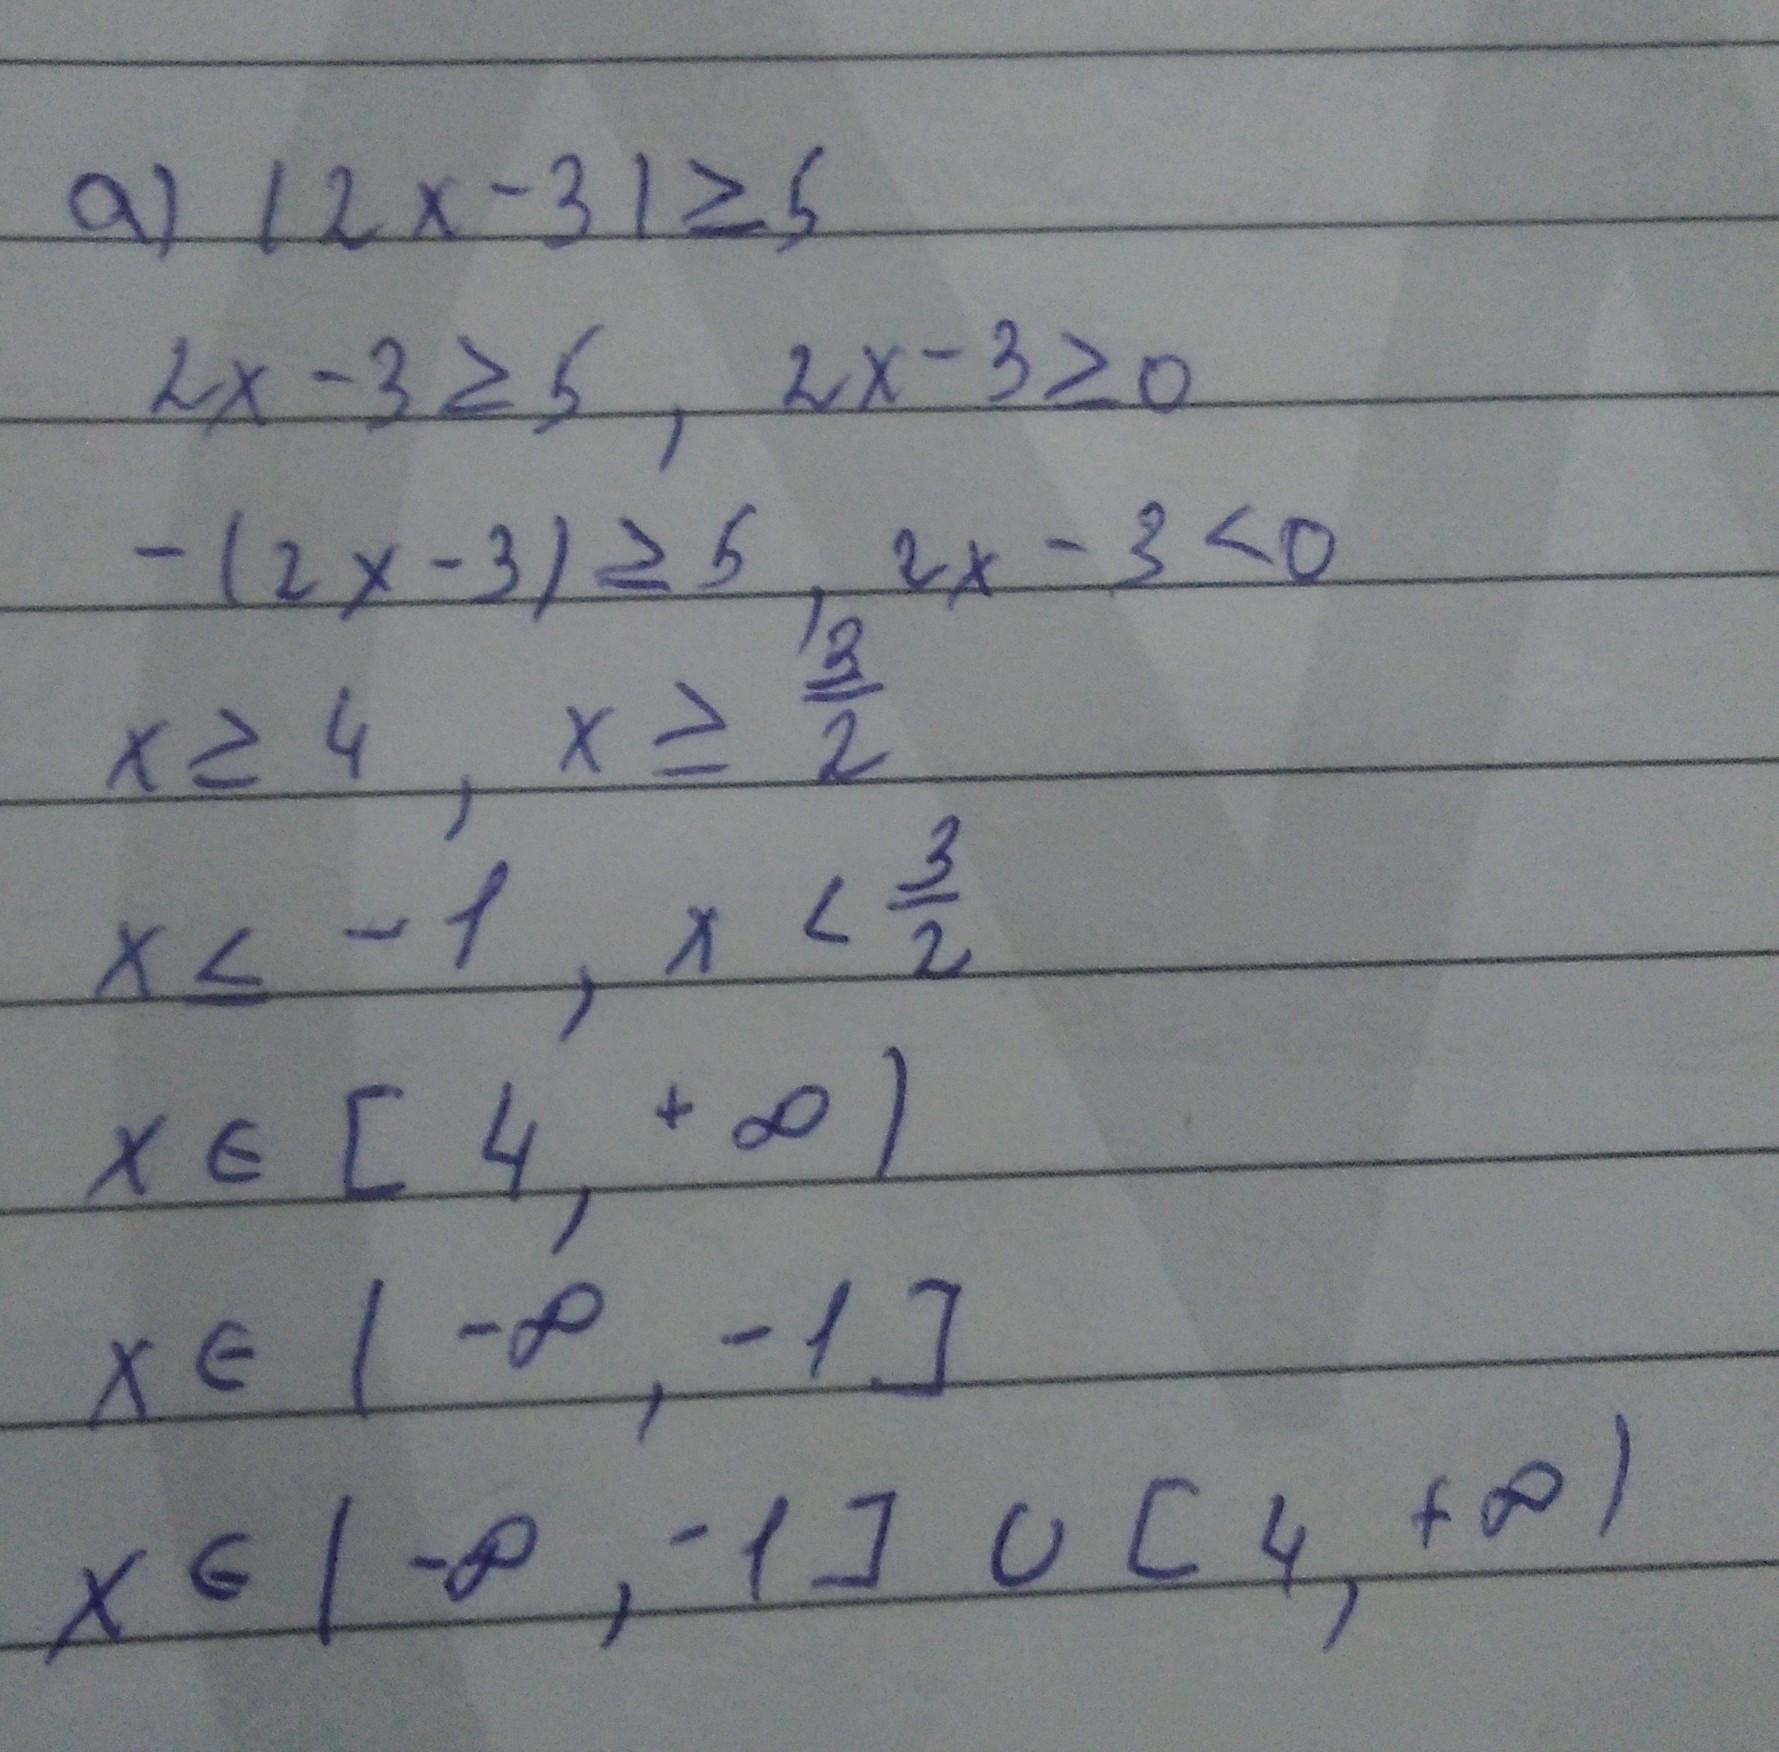 a) |2x-3|≥5
2x-3≥5, 2x-3≥0
-(2x-3)≥5, 2x-3<0
x≥4, x≥3/2
x≤-1, x<3/2
x∈[4,+∞)
x∈(-∞,-1]
x∈(-∞,-1]∪[4,+∞)